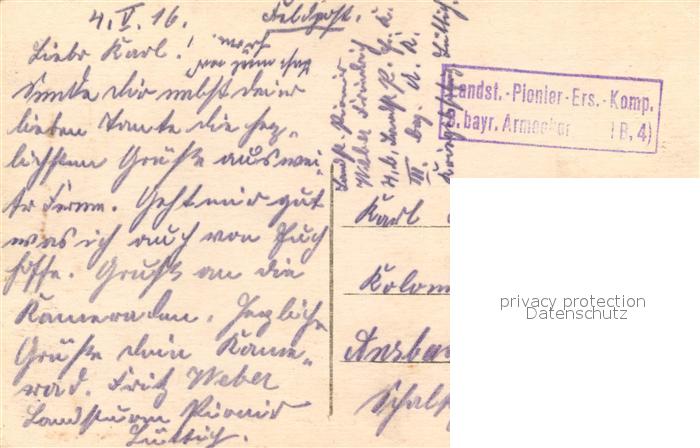 4. V. 16.
Feldpost.
Liebe Karl!
Sende Dir nebst deiner
lieben Tante die herz-
lichsten Grüße aus wei-
ter Ferne. Geht mir gut
was ich auch von Euch
hoffe. Gruß an die
Kameraden. Herzliche
Grüße dein Kame-
rad. Fritz Weber
Landsturm Pionier
Lüttich.
Landst. Pionier
Weber Friedrich
III. bay. A. K.
Lüttich.
Landst.-Pionier-Ers.-Komp.
bayr. Armeekor (B. 4)
Karl
Kolon
Ansba
Schals
privacy protection
Datenschutz